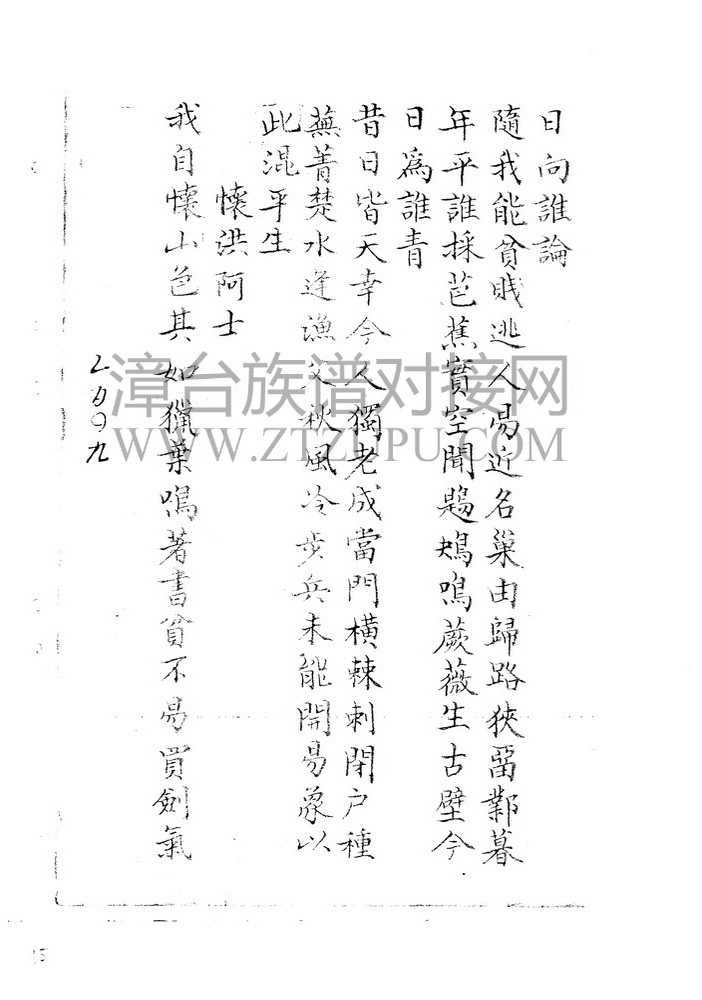 日向誰論
隨我能貧賎逃人昜近名巢由歸路狹畱鄴暮
年平誰採芭蕉實空聞鶗鴂鳴蕨薇生古壁今
日為誰青
昔日皆天幸今人獨老成當門横棘刺閉户種
蕪菁楚水逢漁父秋風冷步兵未能開昜象以
此混平生
懷洪阿士
我自懷山色其如獵葉鳴著書貧不昜買劍氣
漳台族谱对接网
WWW.ZTZUPU.COM
15